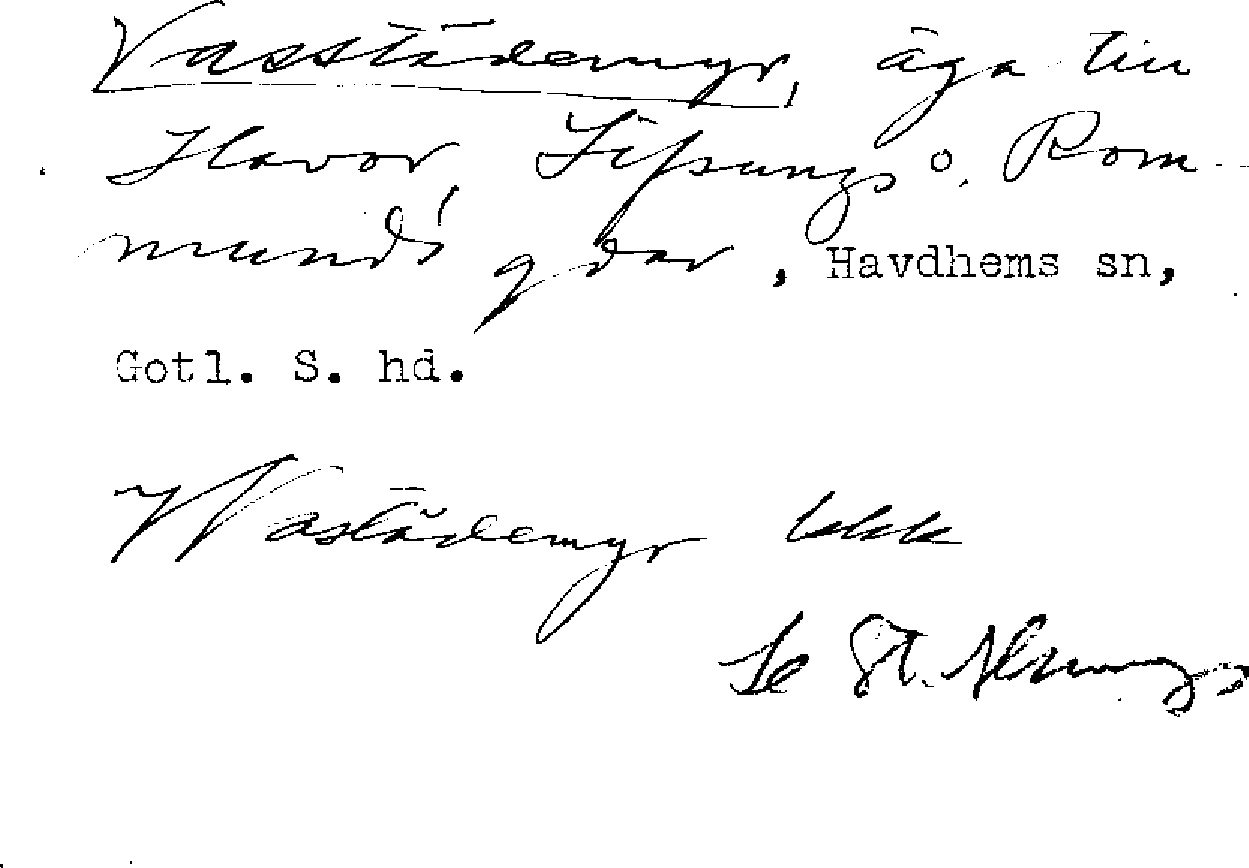 Vasstädemyr, äga till
Havor, Sipungs o. Rom-
munds gdar, Havdhems sn,
Gotl. S. hd.
Wastädemyr
Se St.